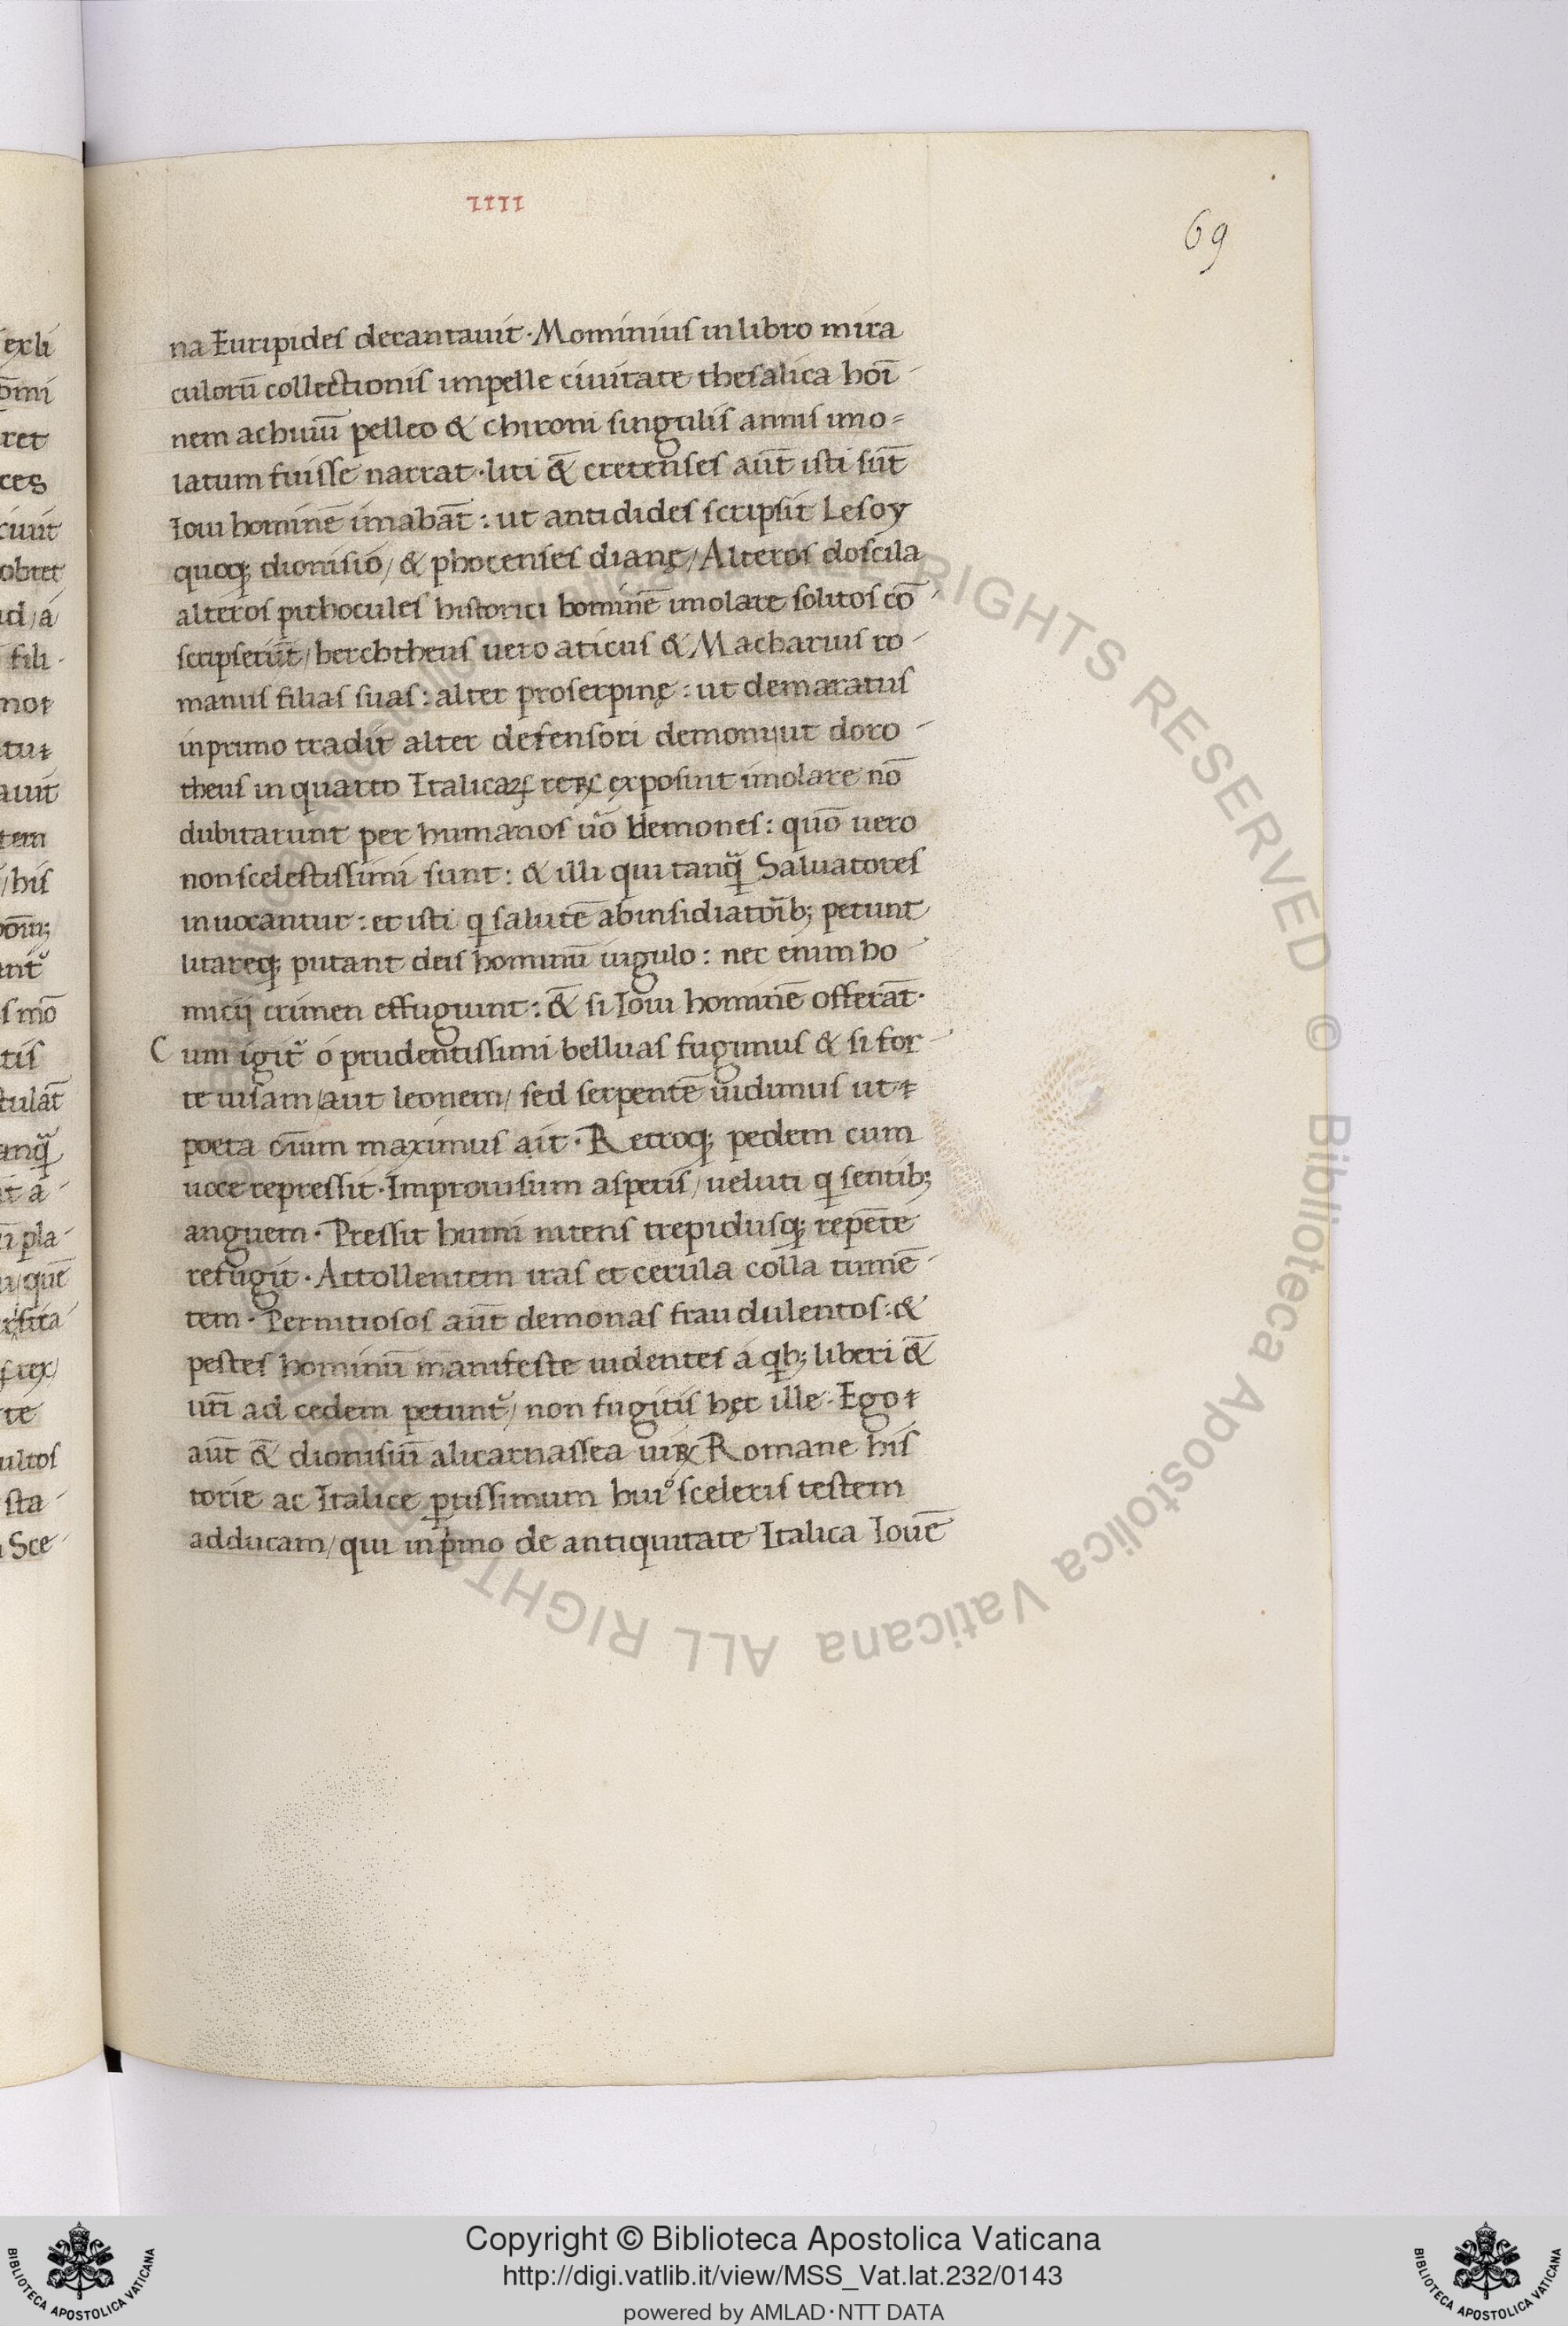 IIII
69
na Euripides decantauit. Mominius in libro mira
culorū collectionis impelle ciuitate thesalica hoī
nem achiuū pelleo & chironi singulis annis imo=
latum fuisse narrat. liti &̄ cretenses aūt isti sūt
Ioui hominē imabāt: ut antidides scripsit Lesoy
quoq; dionisio/ & phocenses dianę/ Alteros doscila
alteros pithocules historici hominē imolare solitos cō
scripserūt/ herchtheus uero aticus & Macharius ro
manus filias suas: alter proserpinę: ut demaratus
in primo tradit alter defensori demoni ut doro
theus in quarto Italicaꝝ reꝝ exposuit imolare nō
dubitarunt per humanos ūo demones: quō uero
non scelestissimi sunt: & illi qui tanq̄ Saluatores
inuocantur: et isti q salutē ab insidiatoīb; petunt
litareq; putant deis hominū iugulo: nec enim ho
micij crimen effugiunt: &̄ si Ioui hominē offerāt.
Cum igit᷑ ó prudentissimi belluas fugimus & si for
te uisam/ aut leonem/ sed serpentē uidimus ut
poeta oīum maximus ait. Retroq; pedem cum
uoce repressit. Improuisum asperis/ ueluti q sentib;
anguem. Pressit humi nitens trepidusq; repēte
refugit. Attollentem iras et cerula colla tumē
tem. Pernitiosos aūt demonas fraudulentos: &
pestes hominū manifeste uidentes á qb; liberi &̄
uri ad cedem petunt᷑/ non fugitis hęc ille. Ego
aūt &̄ dionisiū alicarnassea uiꝝ Romane his
torie ac Italice ꝑtissimum hui᷒ sceleris testem
adducam/ qui in pͥmo de antiquitate Italica Iouē
exli
ret
ces
obtet
fili
auit
tem
his
tis
tulāt
anq̄
pla
quē
rex/
te
ultos
sta
Sce
Biblioteca Apostolica Vaticana ALL RIGHTS RESERVED ©
Copyright © Biblioteca Apostolica Vaticana
http://digi.vatlib.it/view/MSS_Vat.lat.232/0143
powered by AMLAD·NTT DATA
BIBLIOTECA APOSTOLICA VATICANA
BIBLIOTECA APOSTOLICA VATICANA